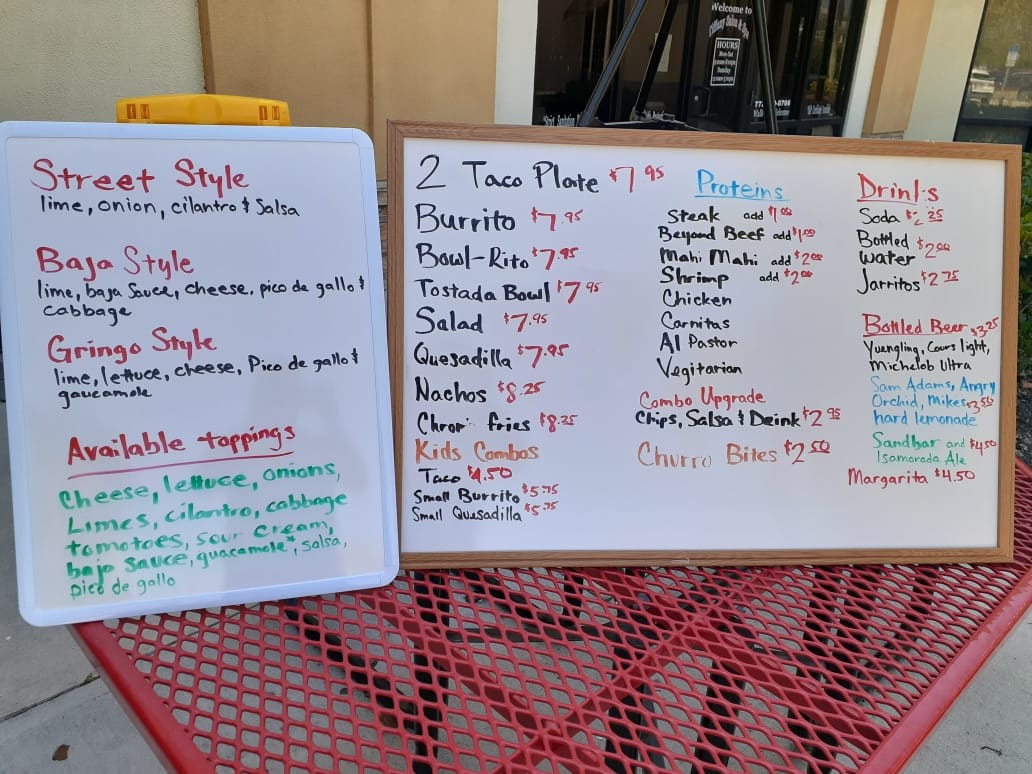 Street Style
lime, onion, cilantro & Salsa
Baja Style
lime, baja Sauce, cheese, pico de gallo &
cabbage
Gringo Style
lime, lettuce, cheese, Pico de gallo &
gaucamole
Available toppings
Cheese, lettuce, onions,
Limes, cilantro, cabbage
tomatoes, sour cream,
baja sauce, guacamole*, salsa,
pico de gallo
2 Taco Plate $7.95
Burrito $7.95
Bowl-Rito $7.95
Tostada Bowl $7.95
Salad $7.95
Quesadilla $7.95
Nachos $8.25
fries $8.25
Kids Combos
Taco $4.50
Small Burrito $5.75
Small Quesadilla $5.75
Proteins
Steak add $1.00
Beyond Beef add $1.00
Mahi Mahi add $2.00
Shrimp add $2.00
Chicken
Carnitas
Al Pastor
Vegitarian
Combo Upgrade
Chips, Salsa & Drink $2.95
Churro Bites $2.50
Drinks
Soda $2.25
Bottled
Water $2.00
Jarritos $2.75
Bottled Beer $3.25
Yuengling, Coors light,
Michelob Ultra
Sam Adams, Angry
Orchid, Mikes $3.50
hard lemonade
Sandbar and $4.50
Isamorada Ale
Margarita $4.50
Welcome to
HOURS
Sunday